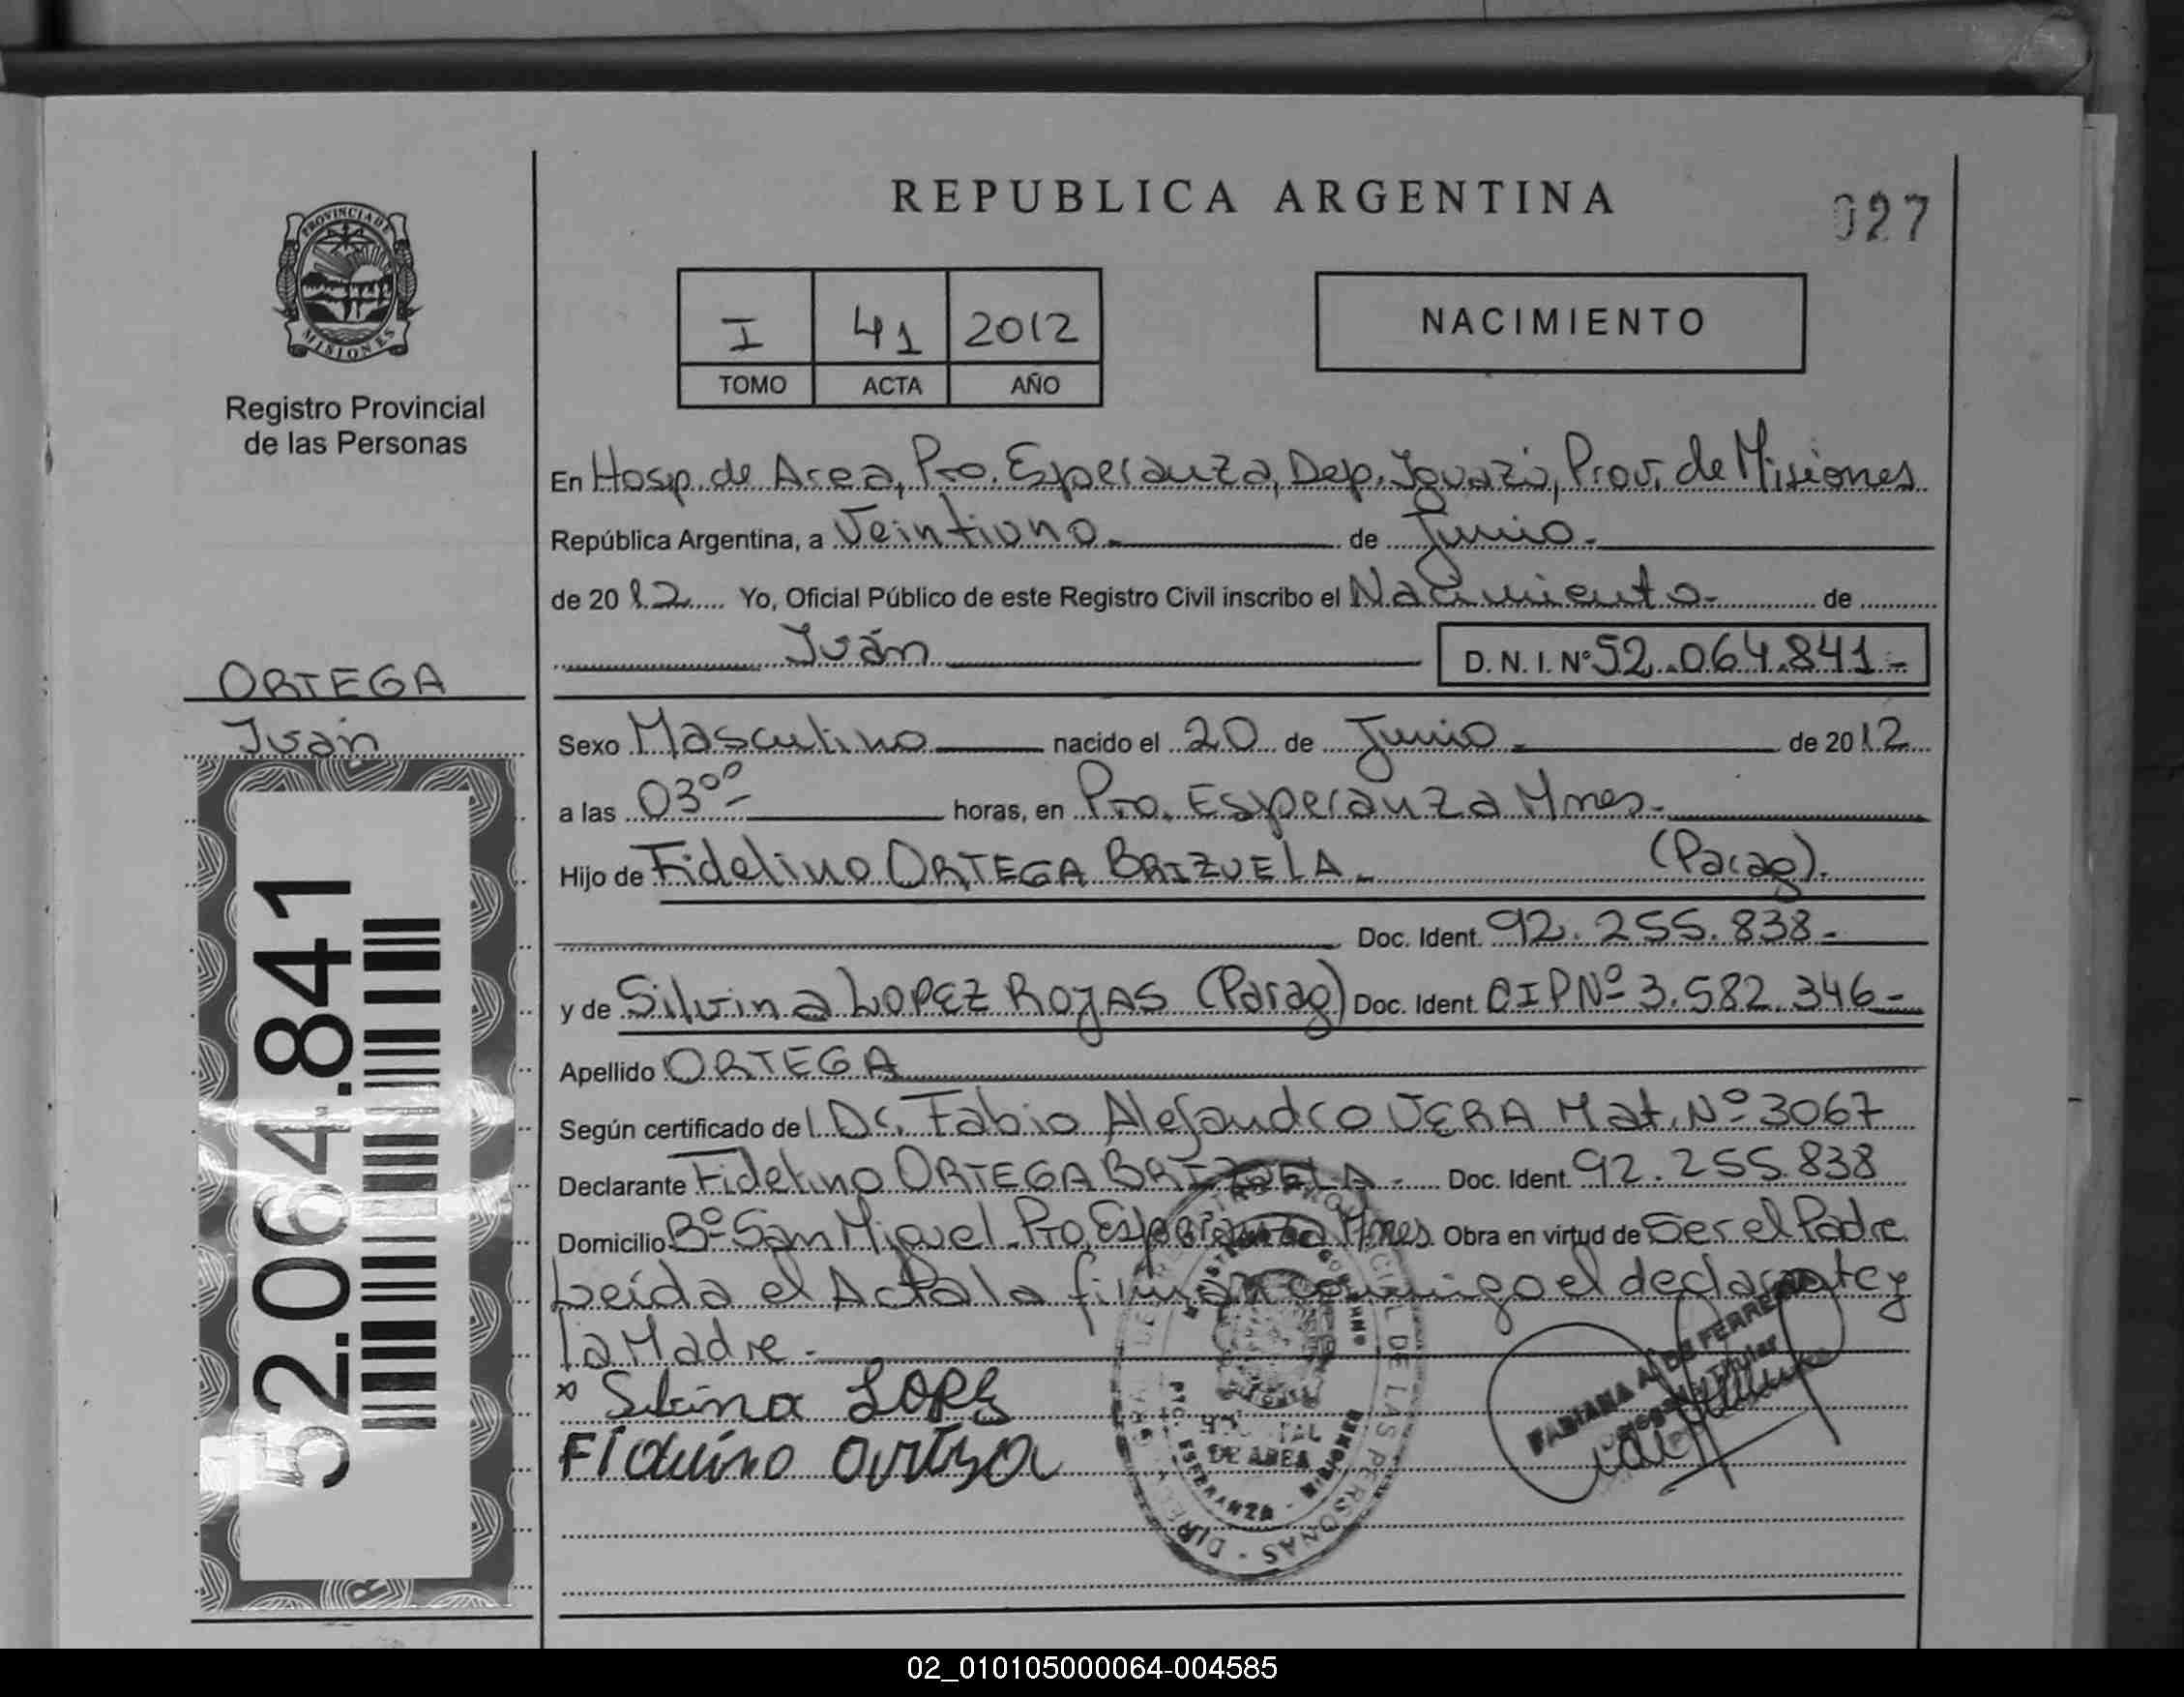 REPUBLICA ARGENTINA
027
PROVINCIA DE
MISIONES
Registro Provincial
de las Personas
I 41 2012
TOMO ACTA AÑO
NACIMIENTO
En Hosp. de Area, Pto. Esperanza, Dep. Iguazú, Prov. de Misiones
República Argentina, a Veintiuno.- de Junio.-
de 2012 Yo, Oficial Público de este Registro Civil inscribo el Nacimiento.- de
Iván D. N. I. N° 52.064.841.-
ORTEGA
Iván
52.064.841
Sexo Masculino nacido el 20 de Junio.- de 2012
a las 03⁰⁰- horas, en Pto. Esperanza Mnes.-
Hijo de Fidelino ORTEGA BRIZUELA.- (Parag).
Doc. Ident. 92.255.838.-
y de Silvina LOPEZ ROJAS (Parag) Doc. Ident. CIP Nº 3.582.346-
Apellido ORTEGA
Según certificado del Dr. Fabio Alejandro VERA Mat. Nº 3067
Declarante Fidelino ORTEGA BRIZUELA.- Doc. Ident. 92.255.838
Domicilio Bº San Miguel - Pto. Esperanza Mnes Obra en virtud de Ser el Padre
Leída el Acta la firman conmigo el declarante y
la Madre.-
x Silvina LOPEZ
Fidelino Ortega
FABIANA A. DE FERREYRA
Titular
HOSPITAL
DE AREA
PTO. ESPERANZA - MISIONES
PROVINCIAL DE LAS PERSONAS
02_010105000064-004585